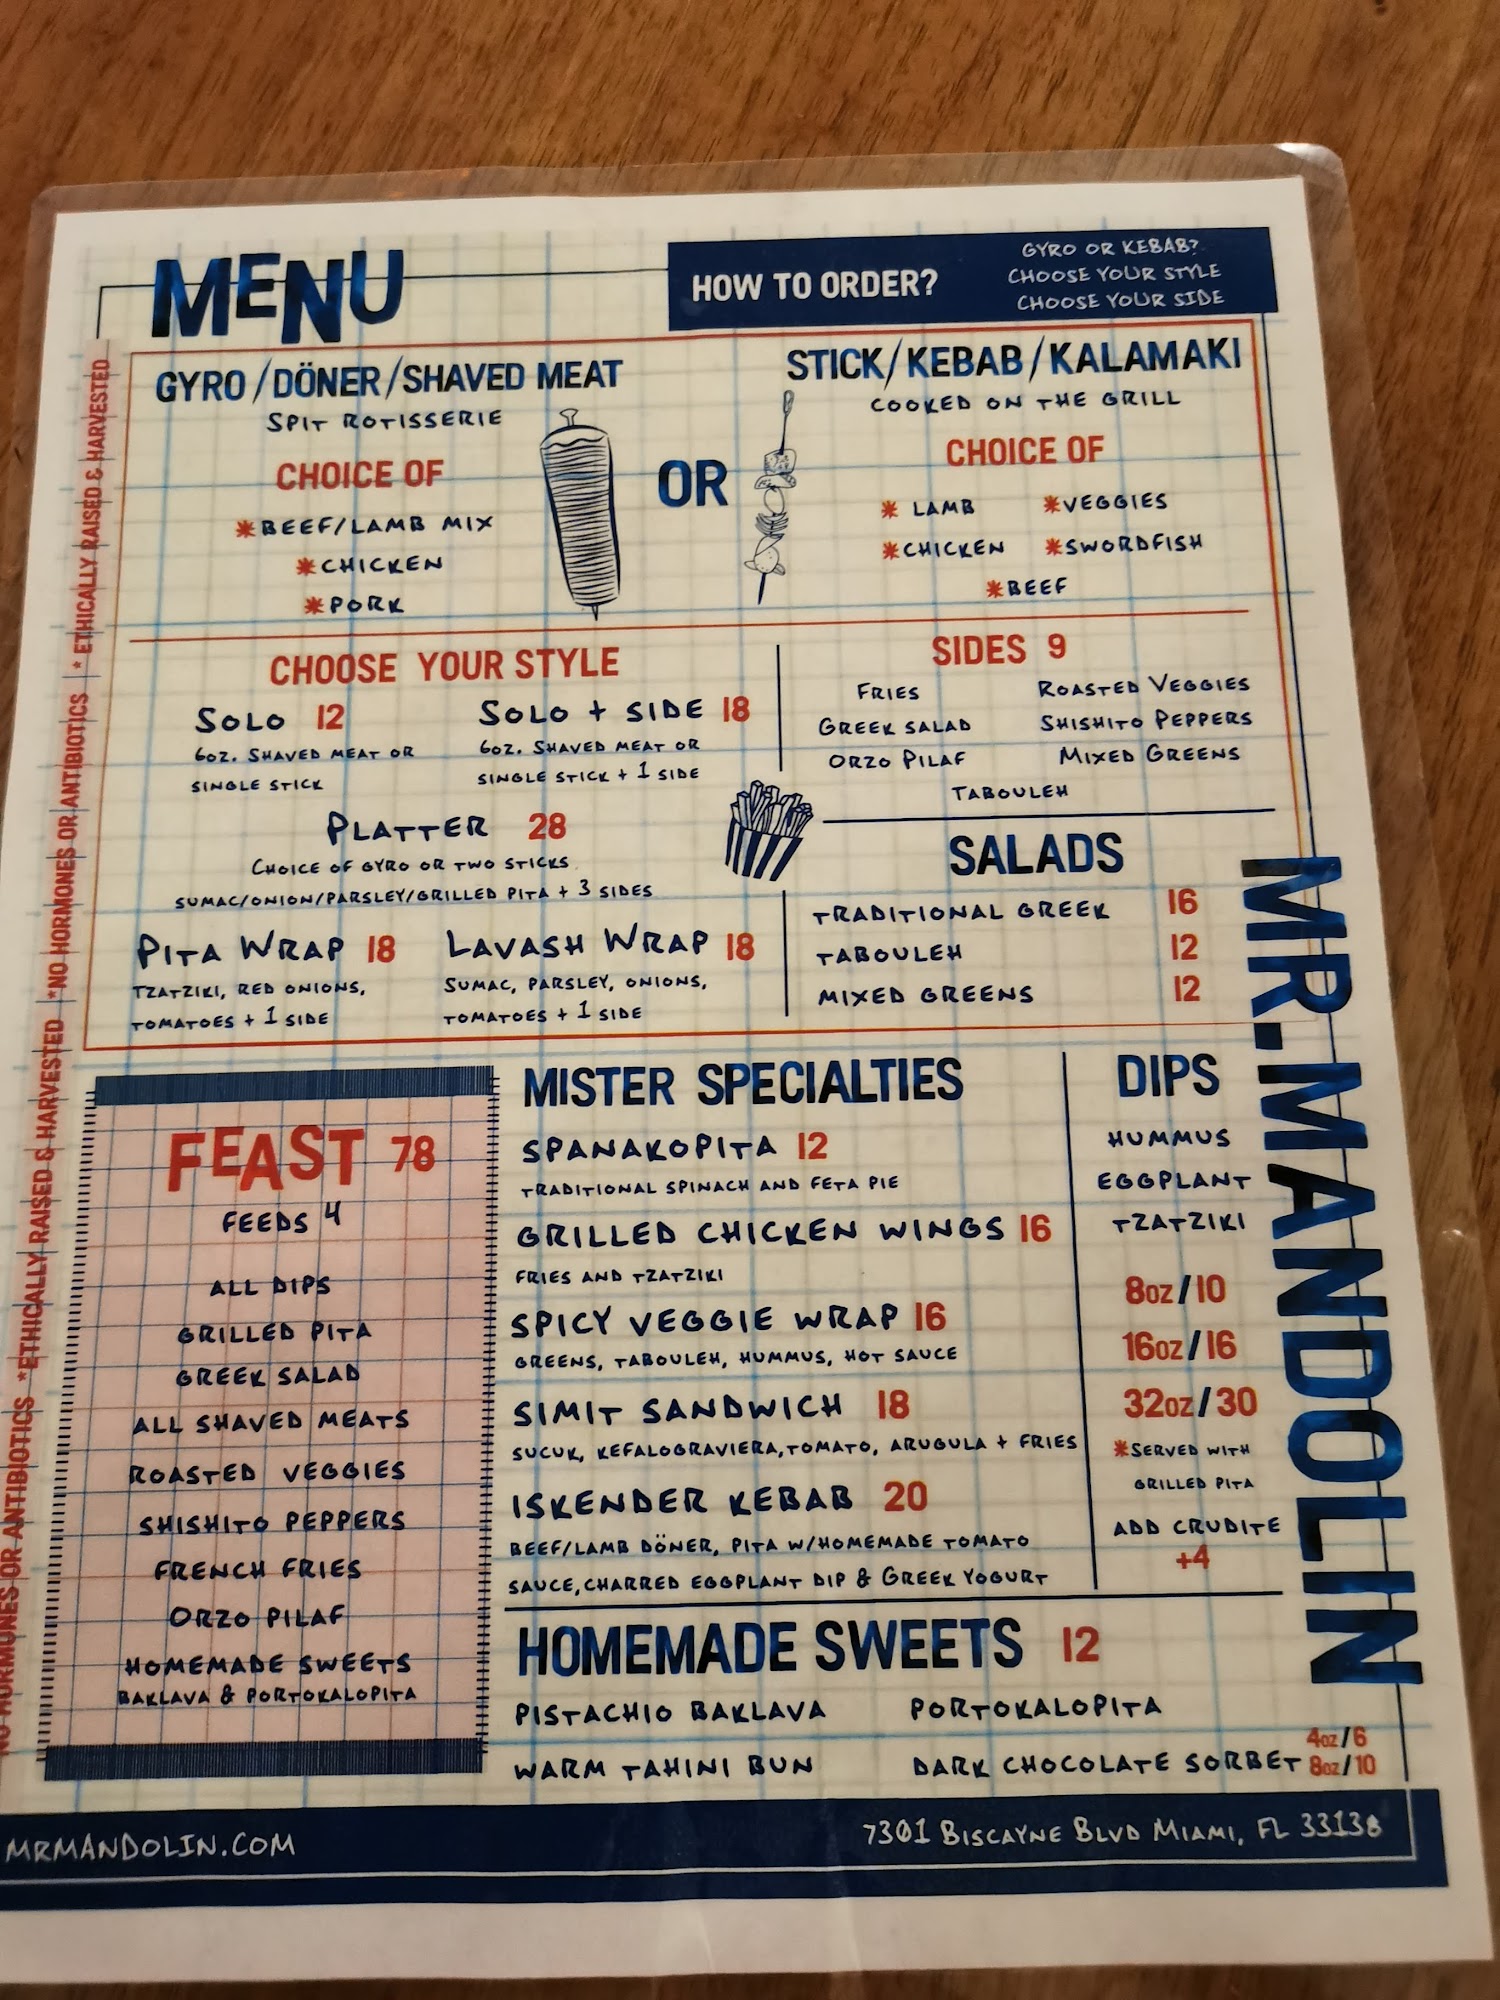 MENU
HOW TO ORDER?
GYRO OR KEBAB?
CHOOSE YOUR STYLE
CHOOSE YOUR SIDE
GYRO/DÖNER/SHAVED MEAT
SPIT ROTISSERIE
CHOICE OF
*BEEF/LAMB MIX
*CHICKEN
*PORK
OR
STICK/KEBAB/KALAMAKI
COOKED ON THE GRILL
CHOICE OF
* LAMB *VEGGIES
*CHICKEN *SWORDFISH
*BEEF
CHOOSE YOUR STYLE
SOLO 12
6OZ. SHAVED MEAT OR
SINGLE STICK
SOLO + SIDE 18
6OZ. SHAVED MEAT OR
SINGLE STICK + 1 SIDE
PLATTER 28
CHOICE OF GYRO OR TWO STICKS
SUMAC/ONION/PARSLEY/GRILLED PITA + 3 SIDES
PITA WRAP 18
TZATZIKI, RED ONIONS,
TOMATOES + 1 SIDE
LAVASH WRAP 18
SUMAC, PARSLEY, ONIONS,
TOMATOES + 1 SIDE
SIDES 9
FRIES ROASTED VEGGIES
GREEK SALAD SHISHITO PEPPERS
ORZO PILAF MIXED GREENS
TABOULEH
SALADS
TRADITIONAL GREEK 16
TABOULEH 12
MIXED GREENS 12
FEAST 78
FEEDS 4
ALL DIPS
GRILLED PITA
GREEK SALAD
ALL SHAVED MEATS
ROASTED VEGGIES
SHISHITO PEPPERS
FRENCH FRIES
ORZO PILAF
HOMEMADE SWEETS
BAKLAVA & PORTOKALOPITA
MISTER SPECIALTIES
SPANAKOPITA 12
TRADITIONAL SPINACH AND FETA PIE
GRILLED CHICKEN WINGS 16
FRIES AND TZATZIKI
SPICY VEGGIE WRAP 16
GREENS, TABOULEH, HUMMUS, HOT SAUCE
SIMIT SANDWICH 18
SUCUK, KEFALOGRAVIERA, TOMATO, ARUGULA + FRIES
ISKENDER KEBAB 20
BEEF/LAMB DÖNER, PITA W/HOMEMADE TOMATO
SAUCE, CHARRED EGGPLANT DIP & GREEK YOGURT
DIPS
HUMMUS
EGGPLANT
TZATZIKI
8OZ/10
16OZ/16
32OZ/30
*SERVED WITH
GRILLED PITA
ADD CRUDITE
+4
HOMEMADE SWEETS 12
PISTACHIO BAKLAVA PORTOKALOPITA
WARM TAHINI BUN DARK CHOCOLATE SORBET 4OZ/6
8OZ/10
MR.MANDOLIN
NO HORMONES OR ANTIBIOTICS *ETHICALLY RAISED & HARVESTED *NO HORMONES OR ANTIBIOTICS *ETHICALLY RAISED & HARVESTED
MRMANDOLIN.COM
7301 BISCAYNE BLVD MIAMI, FL 33138